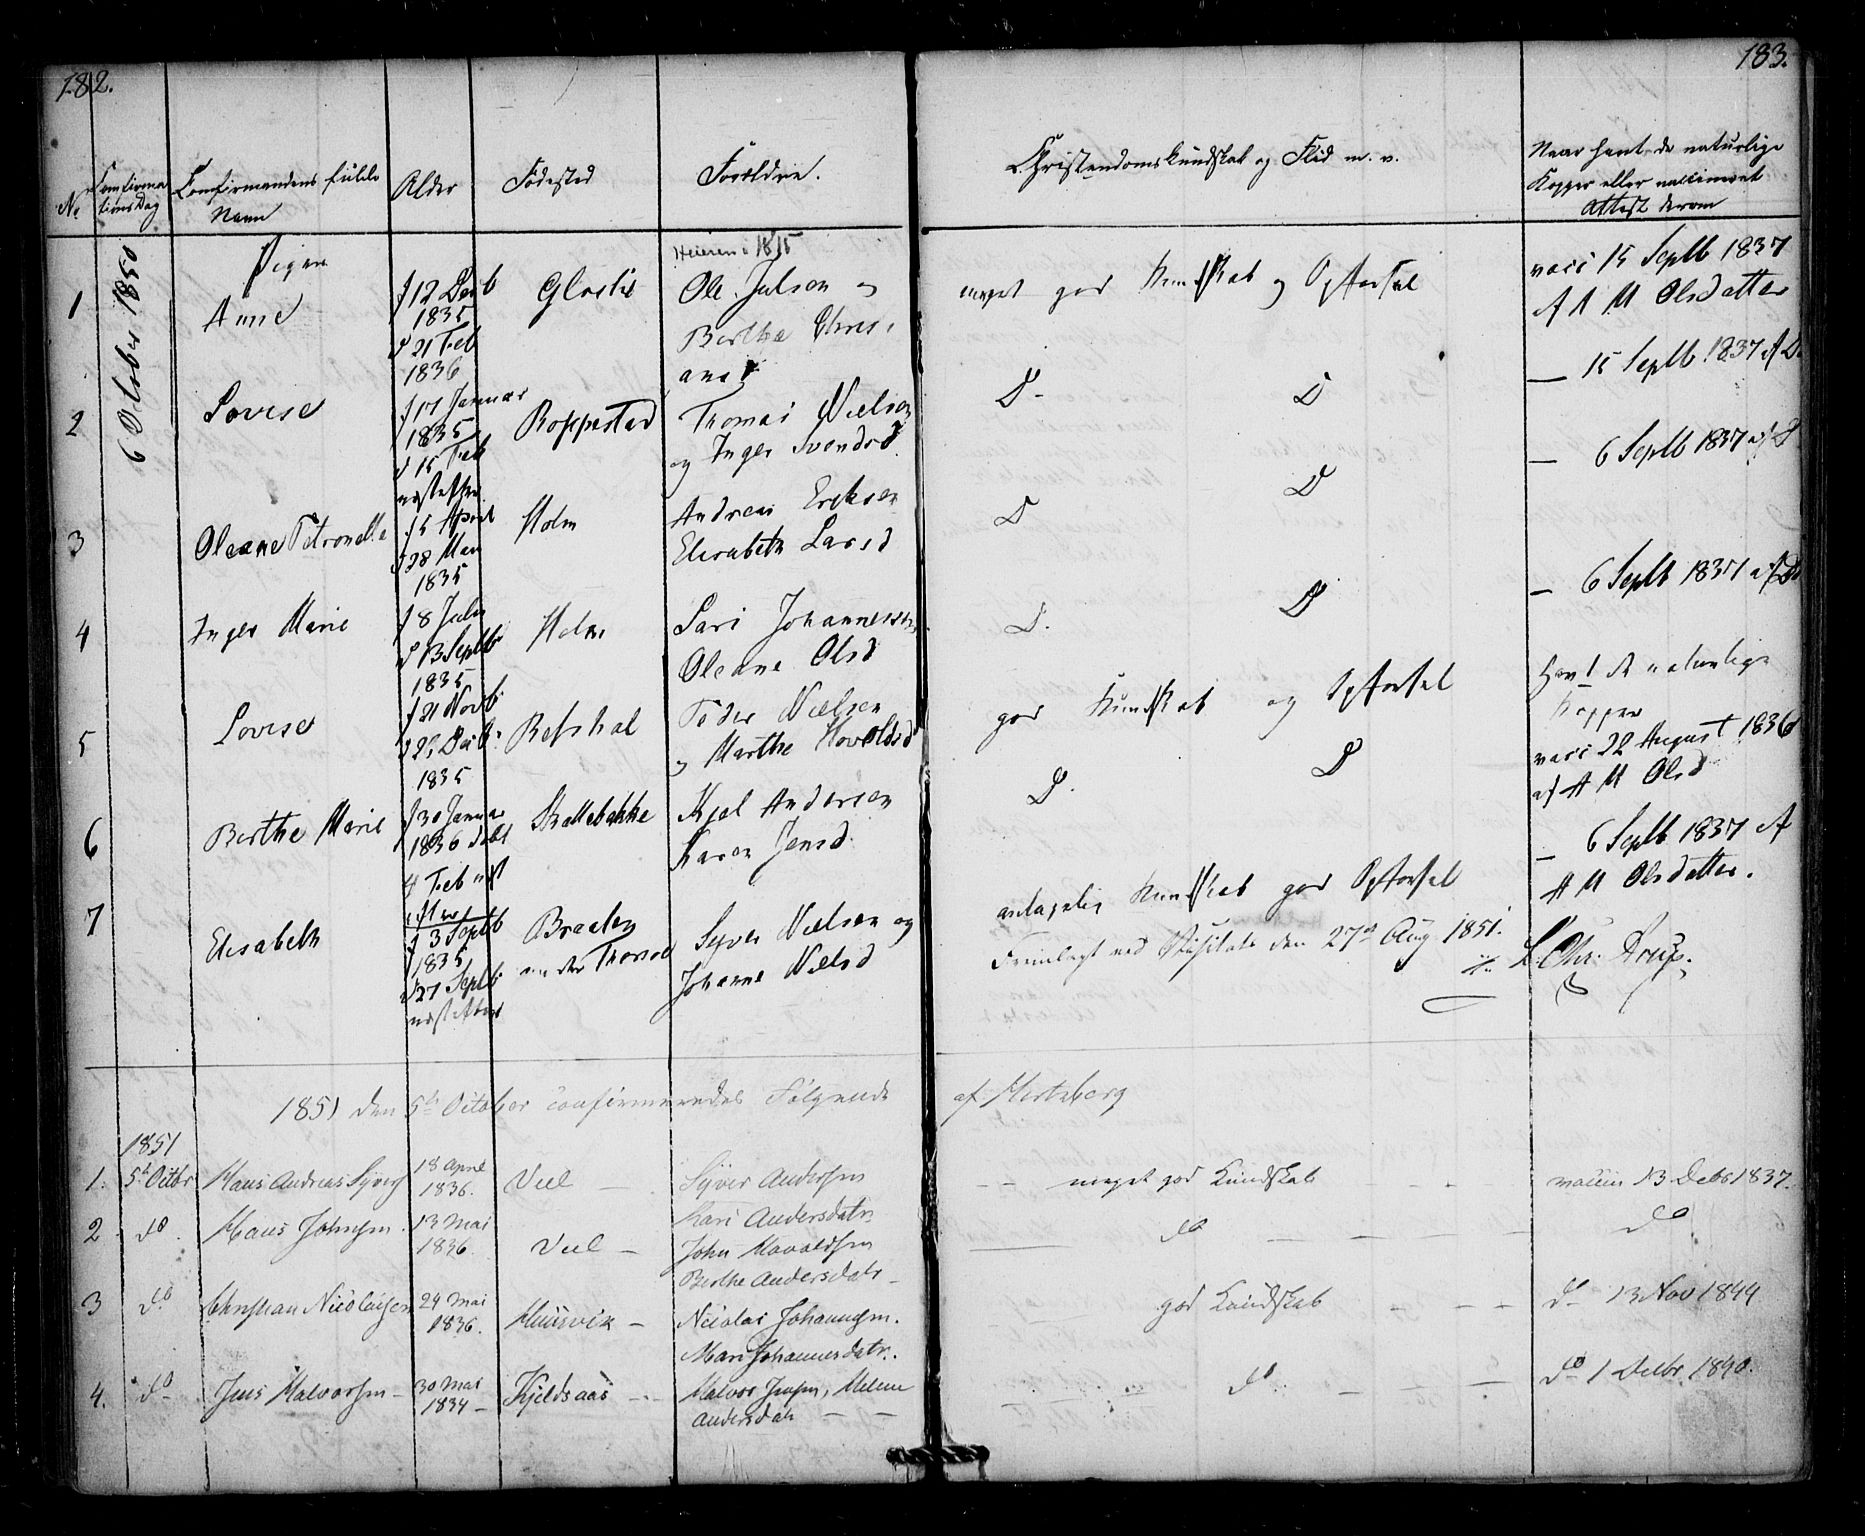 182.
183.
No
Confirma
tions Dag
Confirmandens fulde
Navn
Alder
Fødested
Forældre.
Christendomskundskab og Flid m. v.
Naar havt de naturlige
Kopper eller vaccineret
Attest derom
6 October 1850
Piger
1
Anne
f 12 Decb
1835
d 21 Feb
1836
Ole Julsen og
Berthe Chris
ana
meget god Kundskab og Opførsel
vacc 15 Septb 1837
af A M Olsdatter
2
Lovise
f 17 Januar
1835
d 15 Feb
næstefter
Roppestad
Thomas Nielsen
og Inger Svendsd
D
D
— 15 Septb 1837 af D
3
Oleane Petronelle
f 5 April
d 28 Mai
1835
Holm
Andreas Eriksen
Elisabeth Larsd
D
D
— 6 Septb 1837 af D
4
Inger Marie
f 8 Juli
d 13 Septb
1835
Holm
Lars Johannessen
Oleane Olsd
D.
D
— 6 Septb 1837 af D
5
Lovise
f 21 Novb
d 25 Decb
1835
Refshal
Peder Nielsen
og Marthe Hovaldsd
god Kundskab og Opførsel
havt de naturlige
Kopper
6
Berthe Marie
f 30 Januar
1836 døbt
Feb næst
efter
Skallebakke
Kjel Andersen
Karen Jensd.
D.
D
vacc 22 August 1836
af A M Olsd
7
Elisabeth
f 3 Septb
1835
d 27 Septb
næstefter
Braaten
under Thorsø
Syver Nielsen og
Johanne Nielsd
antagelig Kundskab god Opførsel
— 6 Septb 1837 af
A M Olsdatter.
Fremlagt ved Visitats den 27de Aug 1851.
Chr. Arup.
1851 den 5te October confirmeredes Følgende af Hertzberg
1851
1. 5te Octbr
Hans Andreas Syvers
18 April
1836.
Veel —
Syver Andersen
Kari Andersdatr
meget god Kundskab
vaccin 13 Debr 1837.
2 do.
Hans Johnsen.
13 Mai
1836.
Veel —
John Havaldsen
Berthe Andersdatr
do
do
3 do
Christian Nicolaisen
24 Mai
1836.
Nicolai Johannesen.
Mari Johannesdatr.
god Kundskab
do 13 Nov 1844
4. do
Jens Halvorsen —
30 Mai
1834 —
Kjeldsaas
Halvor Jensen, Helene
Andersdatr — —
do
do 1 Debr. 1840.